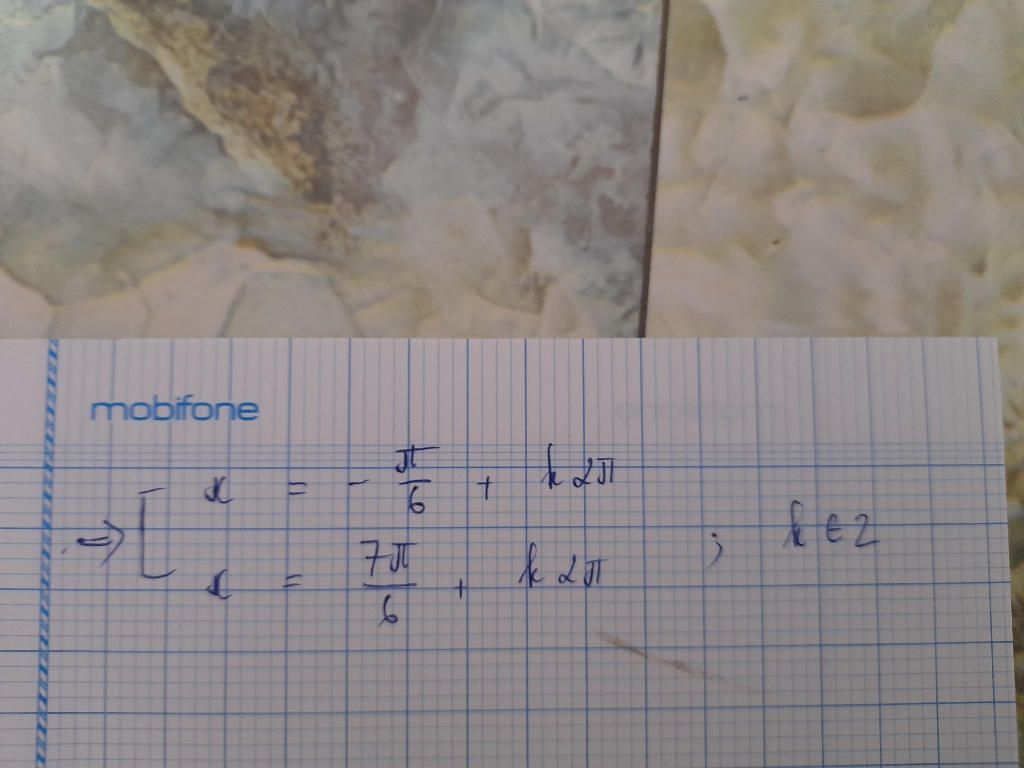 mobifone
x = - π/6 + k2π
=> [ ; k ∈ Z
x = 7π/6 + k2π